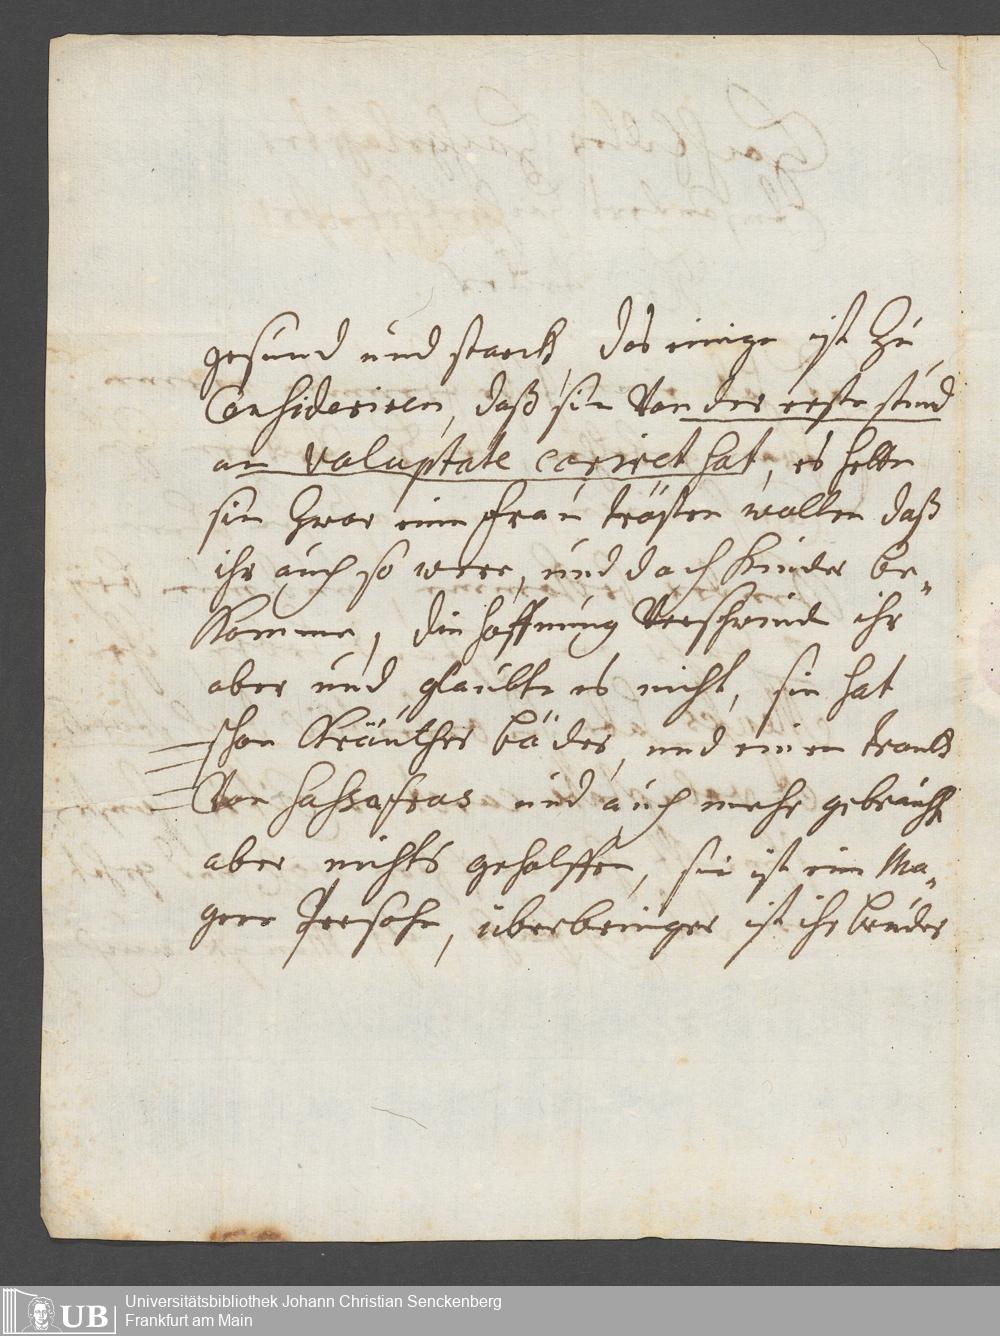 gesund und starck, das einige ist zu
Consideriren, daß sie von der erste stund
an voluptate cariret hat, es hette
sie zwar eine frau trösten wollen daß
ihr auch so were, und doch Kinder be-
Komme, die hoffnung verschwinde ihr
aber und glaubte es nicht, sie hat
schon Kräuther bäder, und einen tranck
von sassafras und auch mehr gebraucht
aber nichts geholffen, sie ist eine Ma-
gere Persohn, überbringer ist ihr bruder
UB
Universitätsbibliothek Johann Christian Senckenberg
Frankfurt am Main